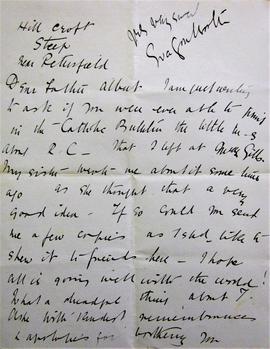 Hill Croft
Steep
Near Petersfield
Yrs very sincerely
Eva Gore Booth
Dear Father Albert I am just writing
to ask if you were ever able to print
in the Catholic Bulletin the little
about R.C. that I left at
My sister wrote me about it some time
ago as she thought that a very
good idea - If so could you send
me a few copies as I shd. like to
shew it to friends here - I hope
all is going well with the world!
What a dreadful thing about
with kindest remembrances
& apologies for bothering you